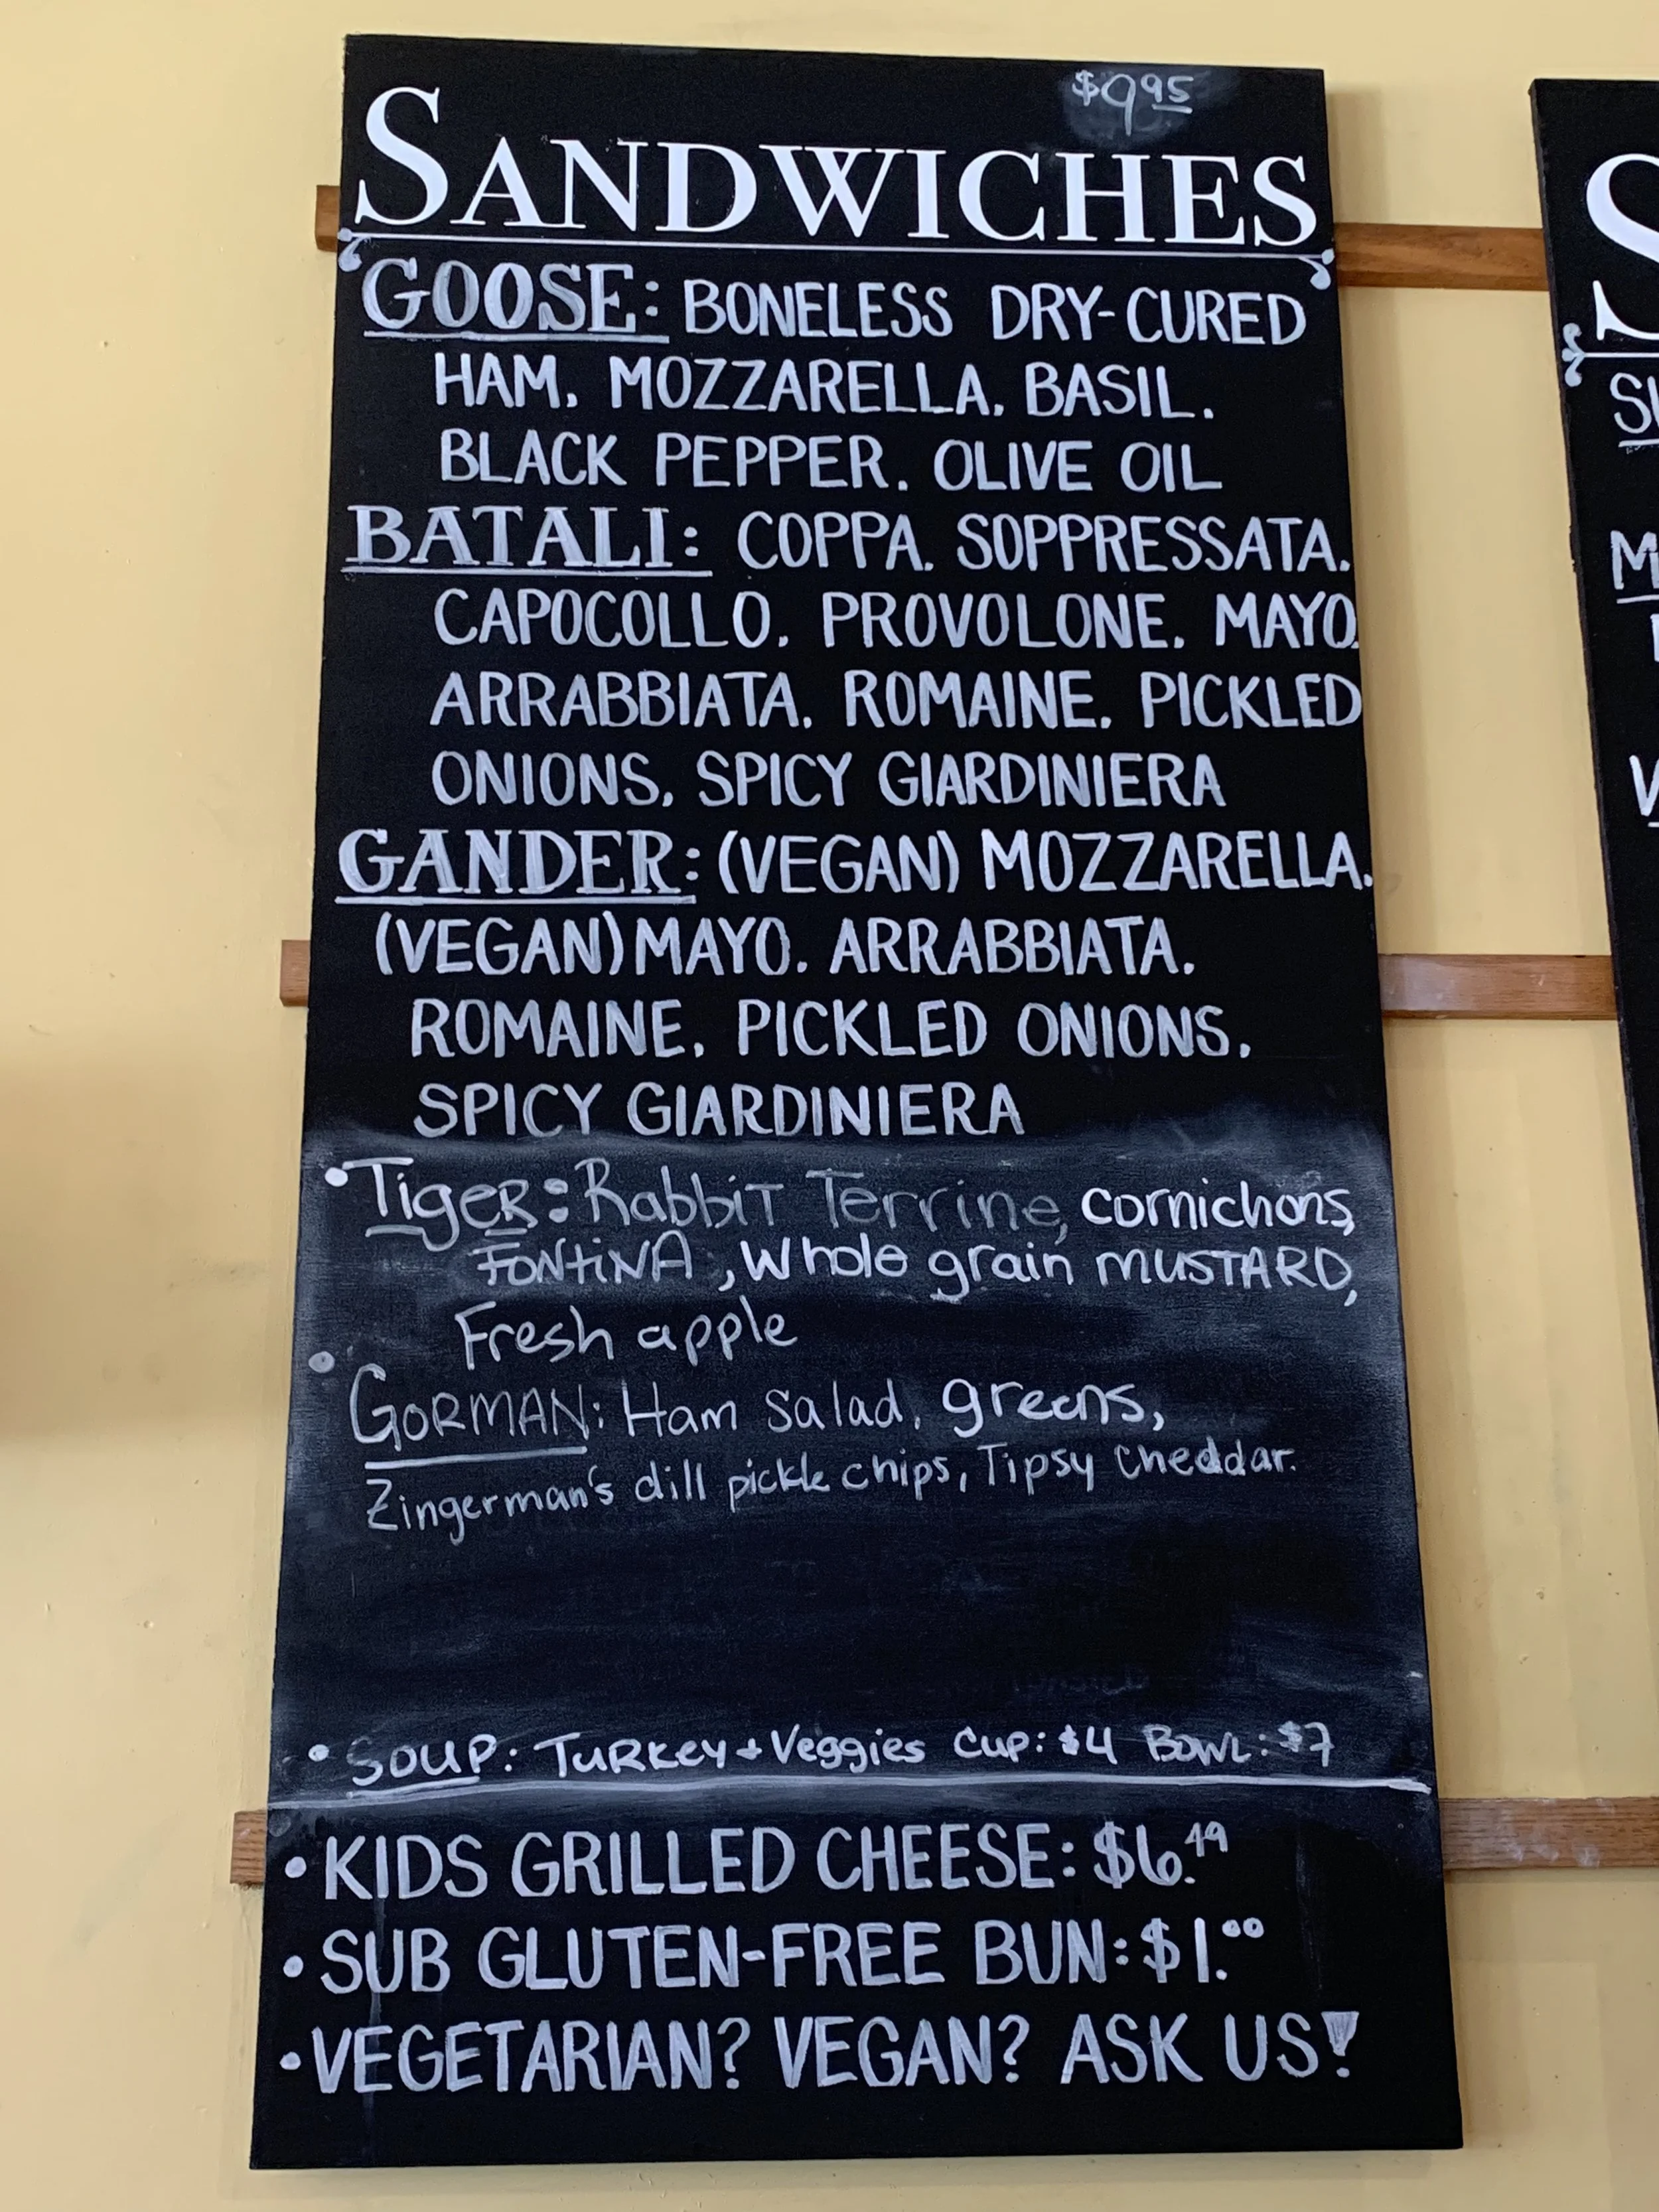 $9.95
SANDWICHES
GOOSE: BONELESS DRY-CURED
HAM. MOZZARELLA. BASIL.
BLACK PEPPER. OLIVE OIL
BATALI: COPPA. SOPPRESSATA.
CAPOCOLLO. PROVOLONE. MAYO.
ARRABBIATA. ROMAINE. PICKLED
ONIONS. SPICY GIARDINIERA
GANDER: (VEGAN) MOZZARELLA.
(VEGAN) MAYO. ARRABBIATA.
ROMAINE. PICKLED ONIONS.
SPICY GIARDINIERA
• TigeR: Rabbit Terrine, cornichons,
FONTiNA, Whole grain MUSTARD,
Fresh apple
• GORMAN: Ham Salad, greens,
Zingerman's dill pickle chips, Tipsy Cheddar.
• SOUP: TURKey + Veggies Cup: $4 Bowl: $7
• KIDS GRILLED CHEESE: $6.49
• SUB GLUTEN-FREE BUN: $1.00
• VEGETARIAN? VEGAN? ASK US!